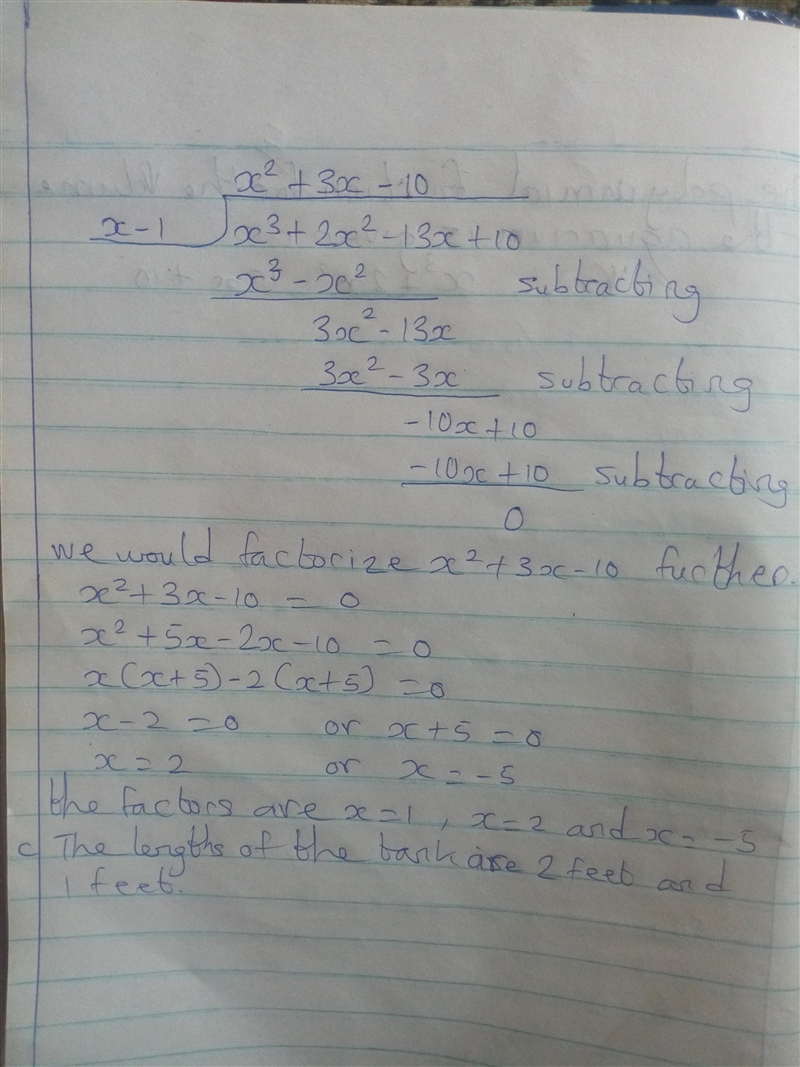 x² + 3x - 10
x - 1 x³ + 2x² - 13x + 10
x³ - x² subtracting
3x² - 13x
3x² - 3x subtracting
-10x + 10
-10x + 10 subtracting
0
we would factorize x² + 3x - 10 further.
x² + 3x - 10 = 0
x² + 5x - 2x - 10 = 0
x(x+5) - 2(x+5) = 0
x - 2 = 0 or x + 5 = 0
x = 2 or x = -5
the factors are x = 1, x = 2 and x = -5
c) The lengths of the tank are 2 feet and
1 feet.